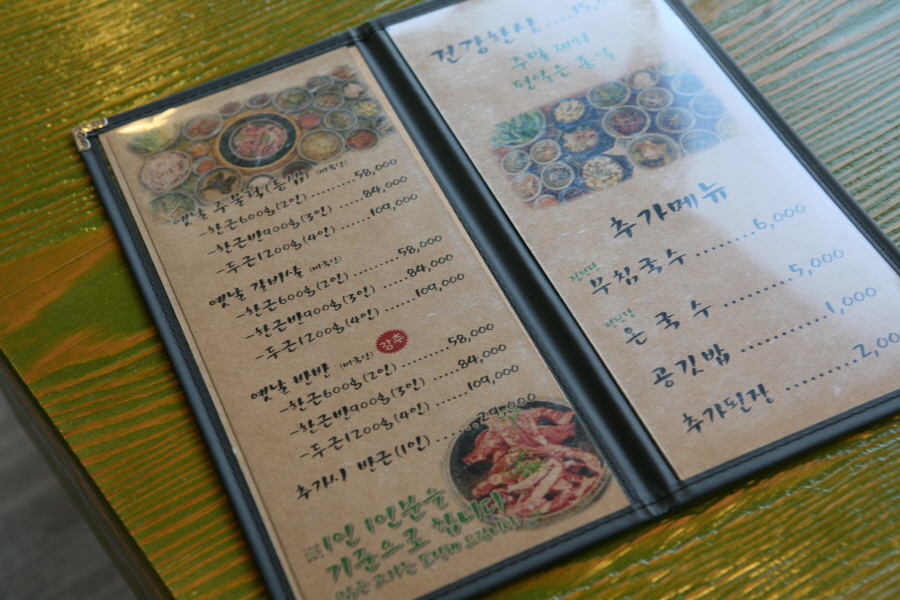 옛날 주물럭(등심) (미국산)
-한근600g(2인)..........58,000
-한근반900g(3인).....84,000
-두근1200g(4인)......109,000
옛날 갈비살 (미국산)
-한근600g(2인)..........58,000
-한근반900g(3인).....84,000
-두근1200g(4인)......109,000
옛날 반반 (미국산) 강추
-한근600g(2인)..........58,000
-한근반900g(3인).....84,000
-두근1200g(4인)......109,000
추가시 반근(1인)......29,000
※1인 1인분을
기준으로 합니다
건강한상.....15,0
주말 제외
평일은 종일
추가메뉴
부침국수........6,000
온국수.........5,000
공깃밥...........1,000
추가된장.........2,00